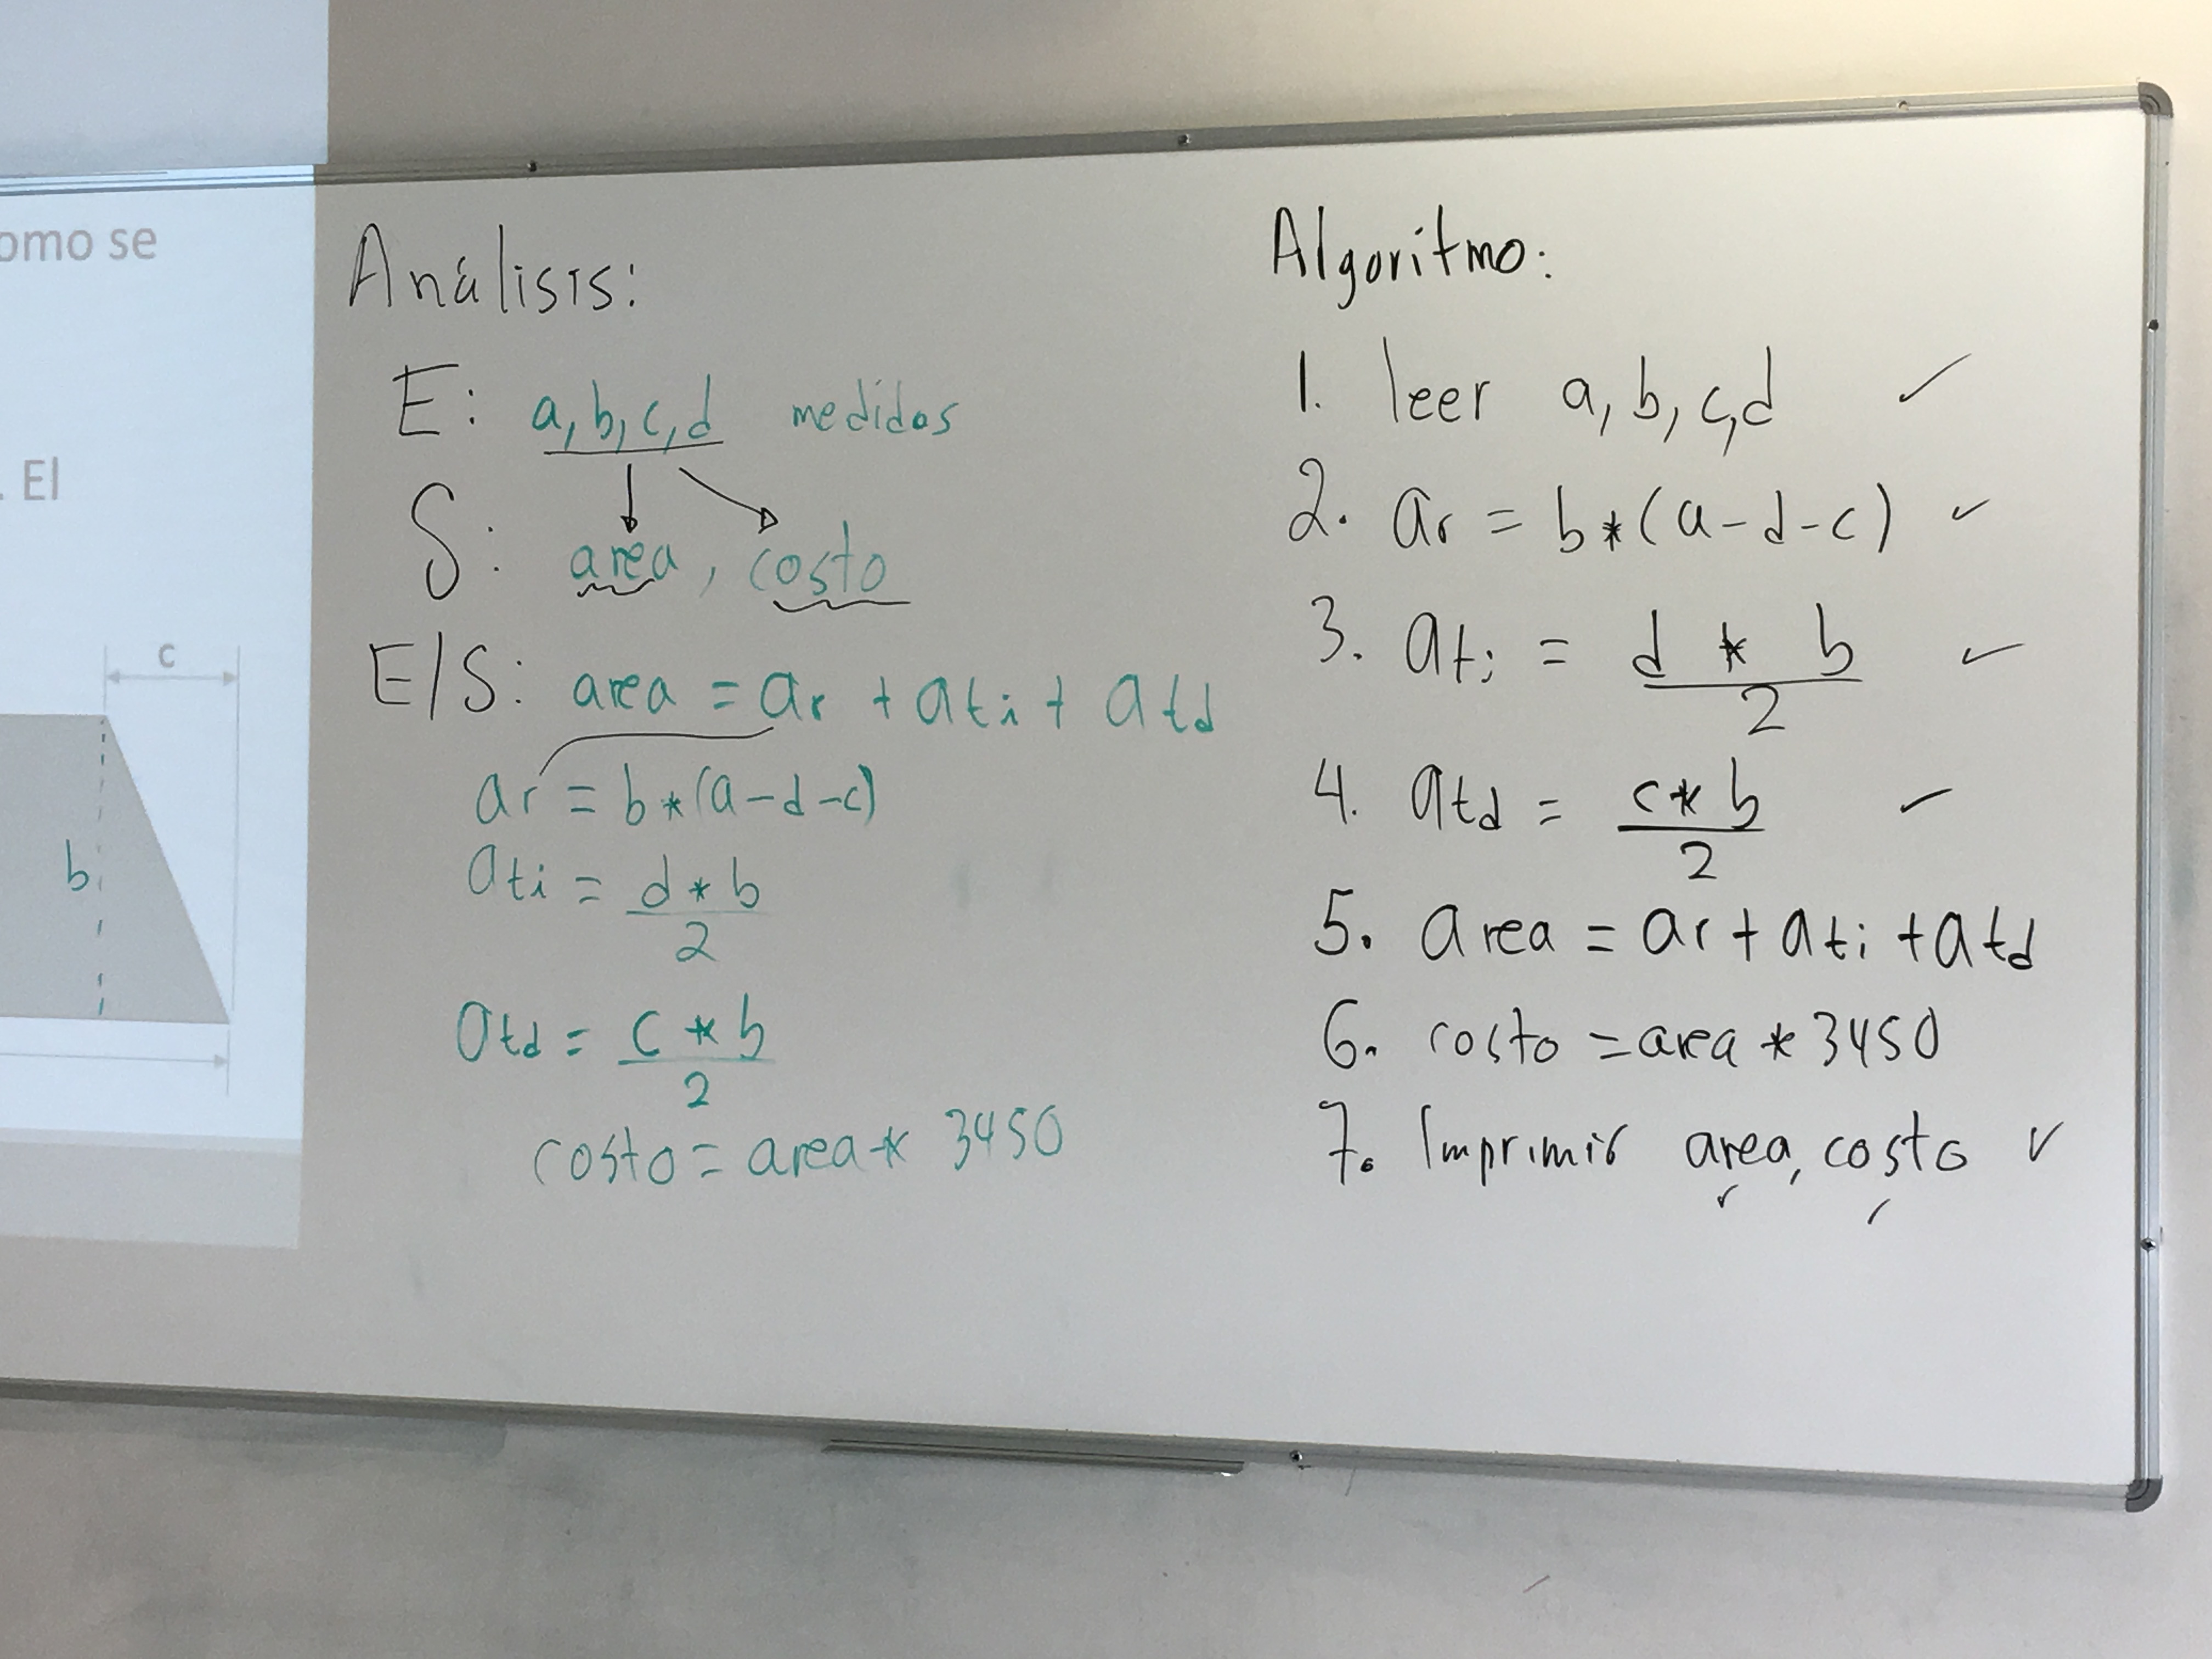 omo se
. El
c
b
Análisis:
E: a, b, c, d medidas
S: area, costo
E/S: area = ar + ati + atd
ar = b*(a-d-c)
ati = d * b
2
atd = c * b
2
costo = area * 3450
Algoritmo:
1. leer a, b, c, d ✓
2. ar = b*(a-d-c) ✓
3. ati = d * b ✓
2
4. atd = c * b ✓
2
5. area = ar + ati + atd
6. costo = area * 3450
7. Imprimir area, costo ✓